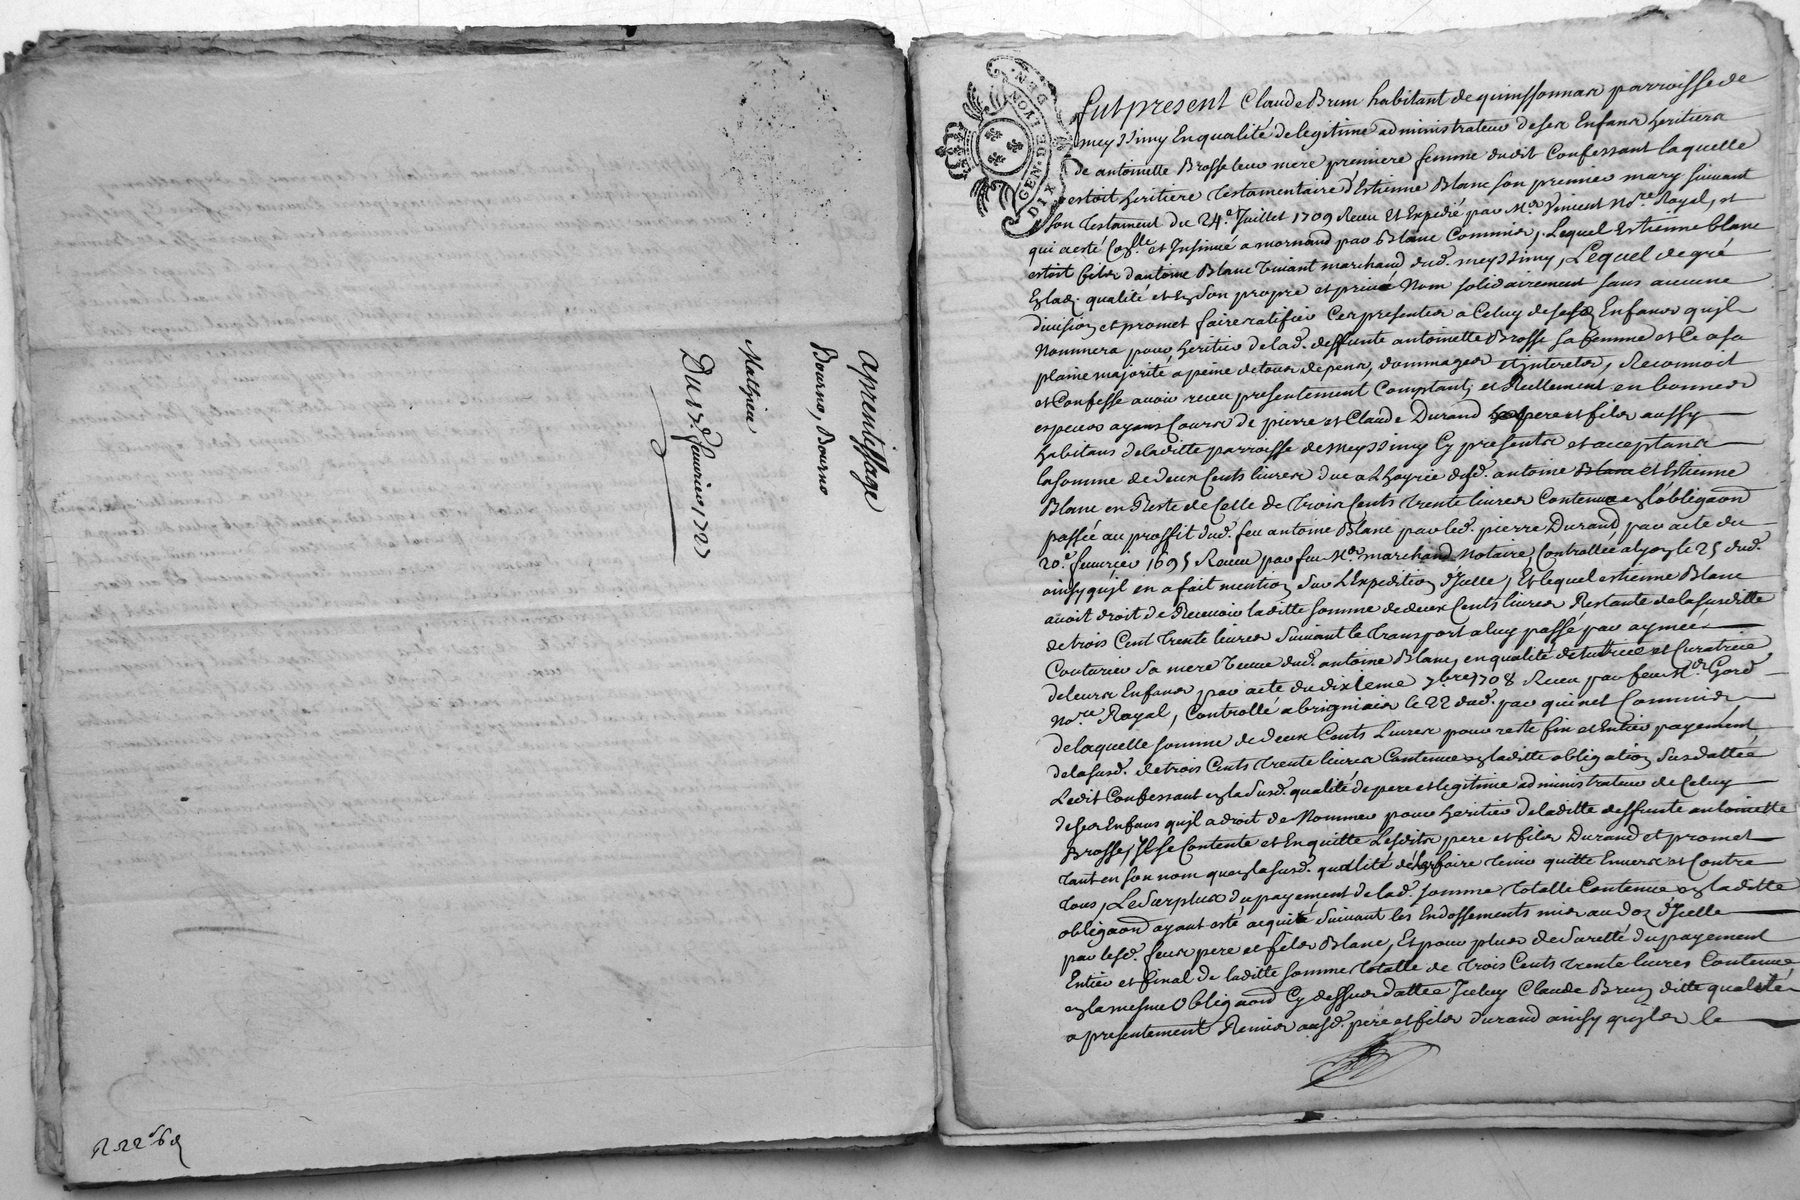 aprentissage
Bourno, Bourno
Mathieu
Du 17e feuvrier 1727
R 22s 6d
GEN. DE LYON
DIX DEN.
fut present Claude Brun habitant de quinssonnas parroisse de
meyssimy En qualité de legitime administrateur de ses Enfans heritiers
de antoinette Brosse leur mere premiere femme dudit Confessant laquelle
estoit heritiere Testamentaire d'Estienne Blanc son premier mary suivant
son Testament du 24e Juillet 1709 Receu Et Expedié par Me Vincent Nore Royal, et
qui a esté Conlle et Insinué a mornand par Blanc Commis, Lequel Estienne blanc
estoit fils d'antoine Blanc vivant marchand dud. meyssimy, Lequel de gré
Ey lad. qualité et Ey son propre et privé Nom solidairement sans aucune
divisioy et promet faire ratifier Ces presentes a Celuy de sesd. Enfans quyl
Nommera pour heritier de lad. deffunte antoinette Brosse sa femme et Ce a sa
plaine majorité, a peine de tous depens, dommages et interets, Reconnoit
et Confesse avoir receu presentement Comptant, et Reellement en bonnes
especes ayans Cours de pierre et Claude Durand pere et fils aussy
habitans de laditte parroisse de meyssimy Cy presents et acceptans
la somme de deux Cents livres due a L'hoyrie dud. antoine Blanc et Estienne
Blanc en Reste de Celle de trois Cents trente livres Contenue ey l'obligaõn
passée au proffit dud. feu antoine Blanc par led. pierre Durand par acte du
20e feuvrier 1695 Receu par feu Me marchand Notaire, Controllée a lyoy le 25 dud.
ainsy quyl en a fait mentioy sur L'Expeditioy d'Jcelle, Et lequel estienne Blanc
avoit droit de Recevoir laditte somme de deux Cents livres Restante de la susditte
de trois Cent trente livres suivant le transport a luy passé par aymée
Couturier sa mere veuve dud. antoine Blanc, en qualité de tutrice et Curatrice
de leurs Enfans par acte du dixieme 7bre 1708 Receu par feu Me Gord
Nore Royal, Controllé a brignais le 22 dud. par quinet Commis
de laquelle somme de deux Cents Livres pour reste fin et Entier payement
de la susd. de trois Cents trente livres Contenue ey laditte obligatioy susdattée
Ledit Confessant ey la susd. qualité de pere et legitime administrateur de Celuy
de ses Enfans quyl a droit de Nommer pour heritier de laditte deffunte antoinette
Brosse, Jl se Contente et En quitte Lesdits pere et fils Durand et promet
tant en son nom que ey la susd. qualité de les faire tenir quitte Envers et Contre
tous, Le surplus du payement de lad. somme totalle Contenue ey laditte
obligaõn ayant esté acquité suivant les Endossements mis au doz d'Jcelle
par lesd. feus pere et fils Blanc, Et pour plus de sureté du payement
Entier et final de laditte somme totalle de trois Cents trente livres Contenue
ey la mesme Obligaõn Cy dessus dattée Jceluy Claude Bruy ditte qualité
a presentement Remis ausd. pere et fils durand ainsy quyls le